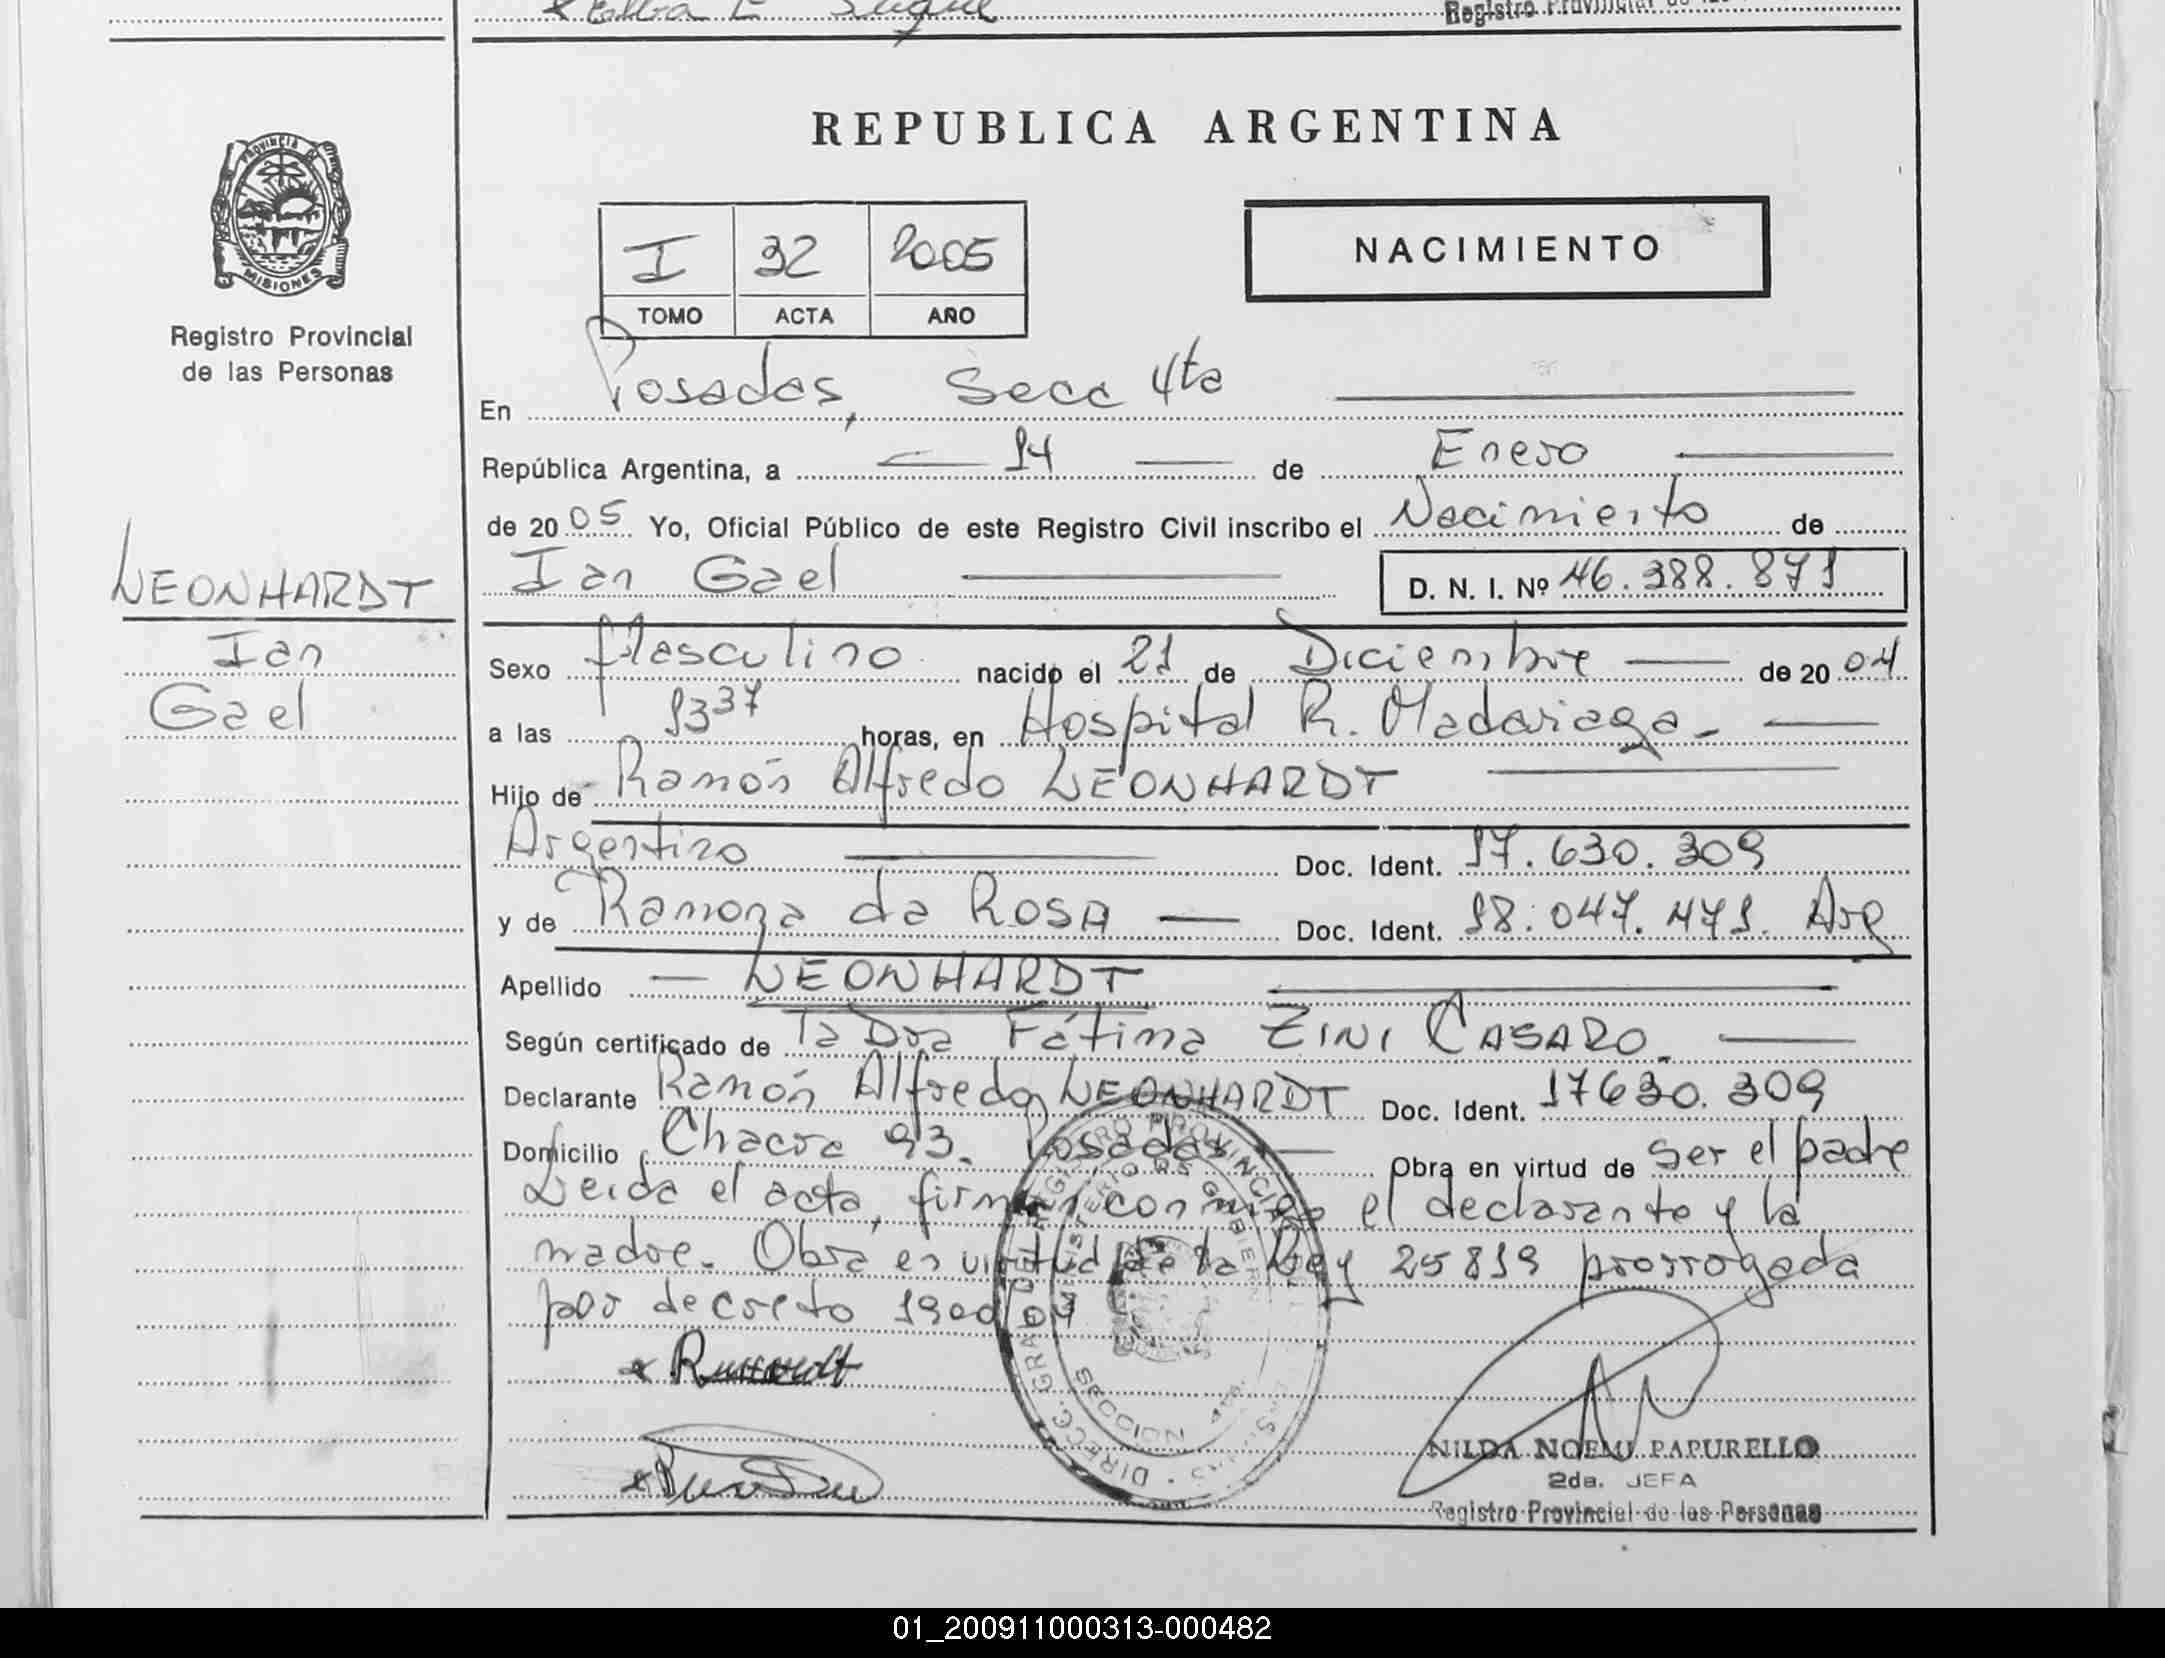 REPUBLICA ARGENTINA
PROVINCIA DE
MISIONES
Registro Provincial
de las Personas
I 32 2005
TOMO ACTA AÑO
NACIMIENTO
En Posadas, Secc 4ta
República Argentina, a 14 de Enero
de 2005 Yo, Oficial Público de este Registro Civil inscribo el Nacimiento de
Ian Gael D. N. I. Nº 46.388.871
LEONHARDT
Ian
Gael
Sexo Masculino nacido el 21 de Diciembre de 2004
a las 13 37 horas, en Hospital R. Madariaga.
Hijo de Ramón Alfredo LEONHARDT
Argentino Doc. Ident. 17.630.309
y de Ramona da ROSA Doc. Ident. 18.047.471. Arg
Apellido LEONHARDT
Según certificado de la Dra Fátima ZINI CASARO.
Declarante Ramón Alfredo LEONHARDT Doc. Ident. 17630.309
Domicilio Chacra 93. Posadas Obra en virtud de ser el padre
Leida el acta, firman conmigo el declarante y la
madre. Obra en virtud de la Ley 25819 prorrogada
por decreto 1900/04
SECCION 4ta.
NILDA NOEMI PAPURELLO
2da. JEFA
Registro Provincial de las Personas
01_200911000313-000482